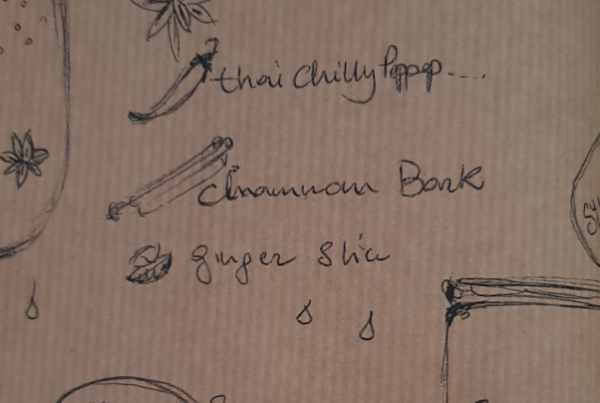 thai Chilly Pappap....
Cinamnom Bark
ginger Slice
Sy